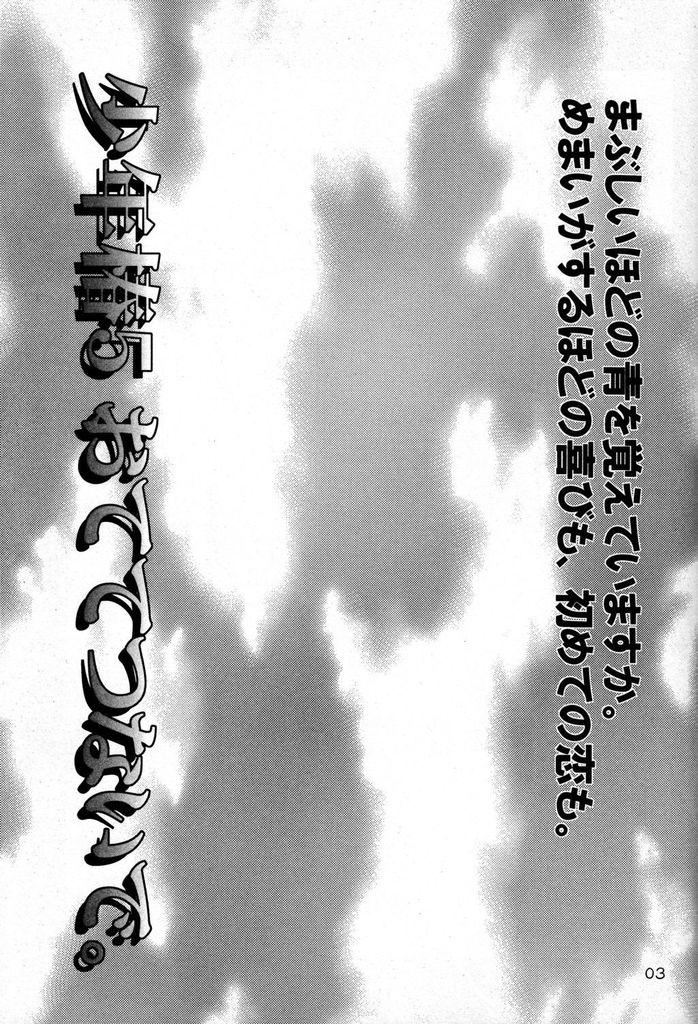 まぶしいほどの青を覚えていますか。
めまいがするほどの喜びも、初めての恋も。
少年 おててつないで。
03